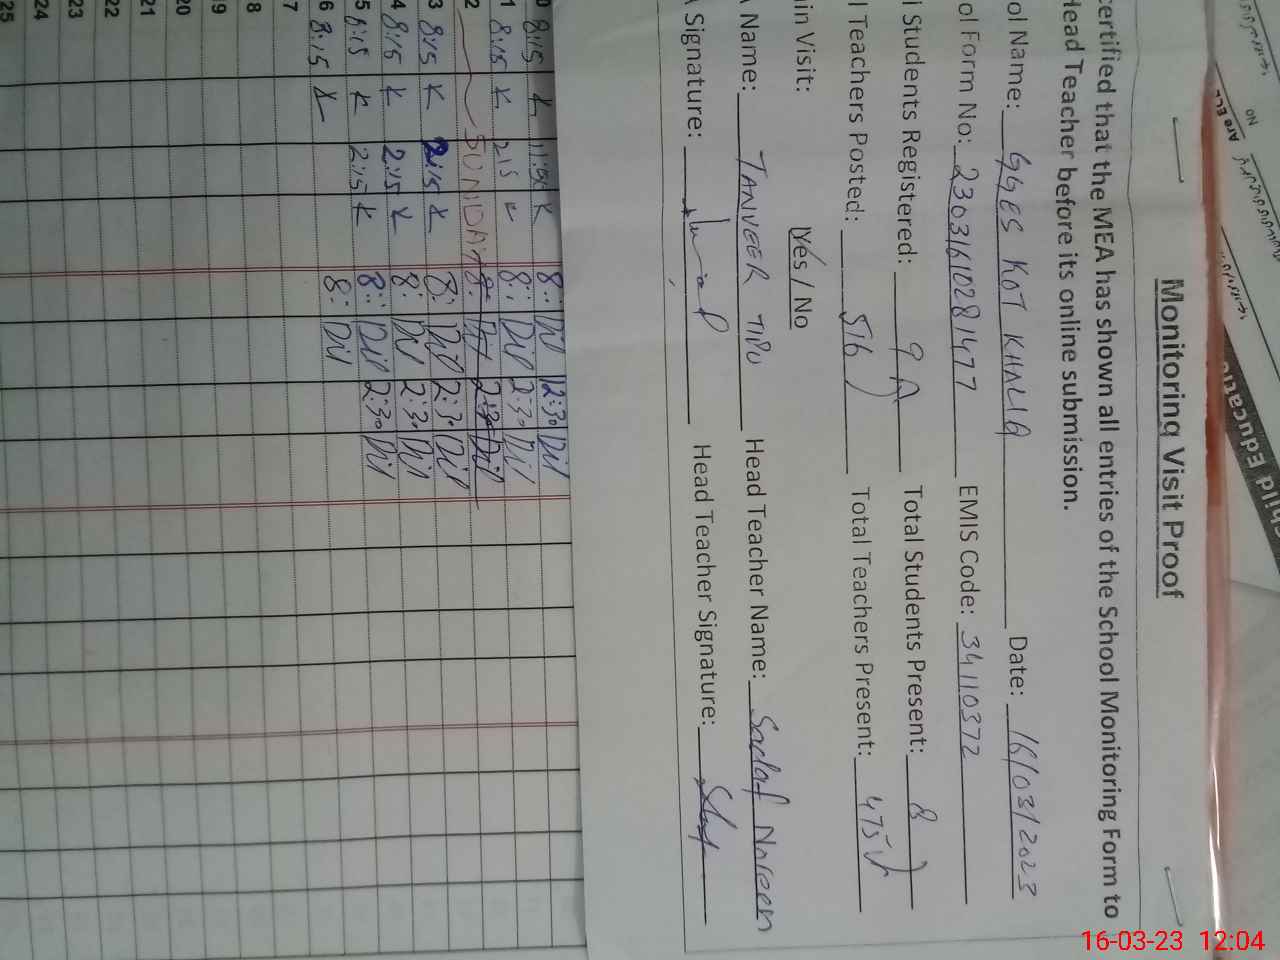 Monitoring Visit Proof
certified that the MEA has shown all entries of the School Monitoring Form to
Head Teacher before its online submission.
ol Name: GGES KOT KHALIQ Date: 16/03/2023
ol Form No: 23031610281477 EMIS Code: 34110372
l Students Registered: 9 Total Students Present: 8
l Teachers Posted: 516 Total Teachers Present: 475
in Visit: Yes / No
A Name: TANVEER TIPU Head Teacher Name: Sadaf Noreen
A Signature: Head Teacher Signature:
0 8:15 8: Dil 12:30 Dil
1 8:15 215 8: Dil 2:30 Dil
2 SUNDAY 8: Dil 2:30 Dil
3 8:15 2:15 8: Dil 2:30 Dil
4 8:15 2:15 8: Dil 2:30 Dil
5 8:15 2:15 8: Dil 2:30 Dil
6 8:15 8: Dil
7
8
19
20
21
22
23
24
25
Are EC
NO
hild Educatio
16-03-23 12:04